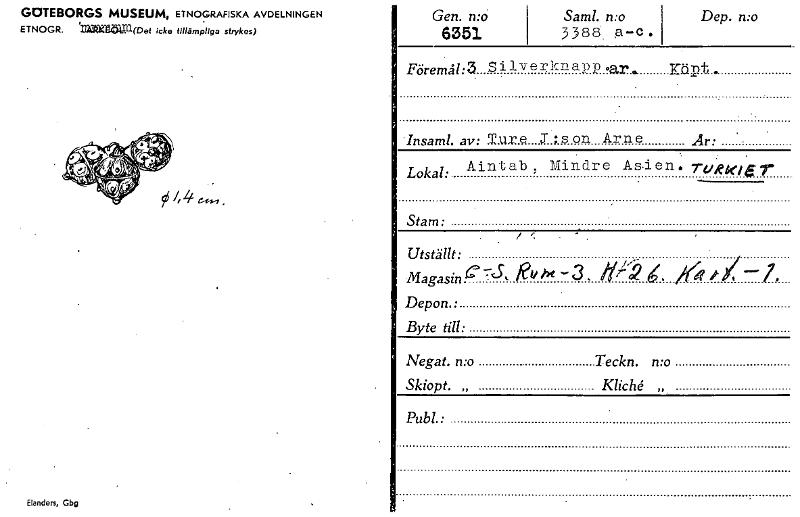 GÖTEBORGS MUSEUM, ETNOGRAFISKA AVDELNINGEN
ETNOGR. (Det icke tillämpliga strykes)
ϕ 1,4 cm.
Elanders, Gbg
Gen. n:o Saml. n:o Dep. n:o
6351 3388 a-c.
Föremål: 3 Silverknapp.ar. Köpt.
Insaml. av: Ture J:son Arne År:
Lokal: Aintab, Mindre Asien. TURKIET
Stam:
Utställt:
Magasin: C-S. Rum-3. H-26. Kart.-1.
Depon.:
Byte till:
Negat. n:o Teckn. n:o
Skiopt. „ Kliché „
Publ.: